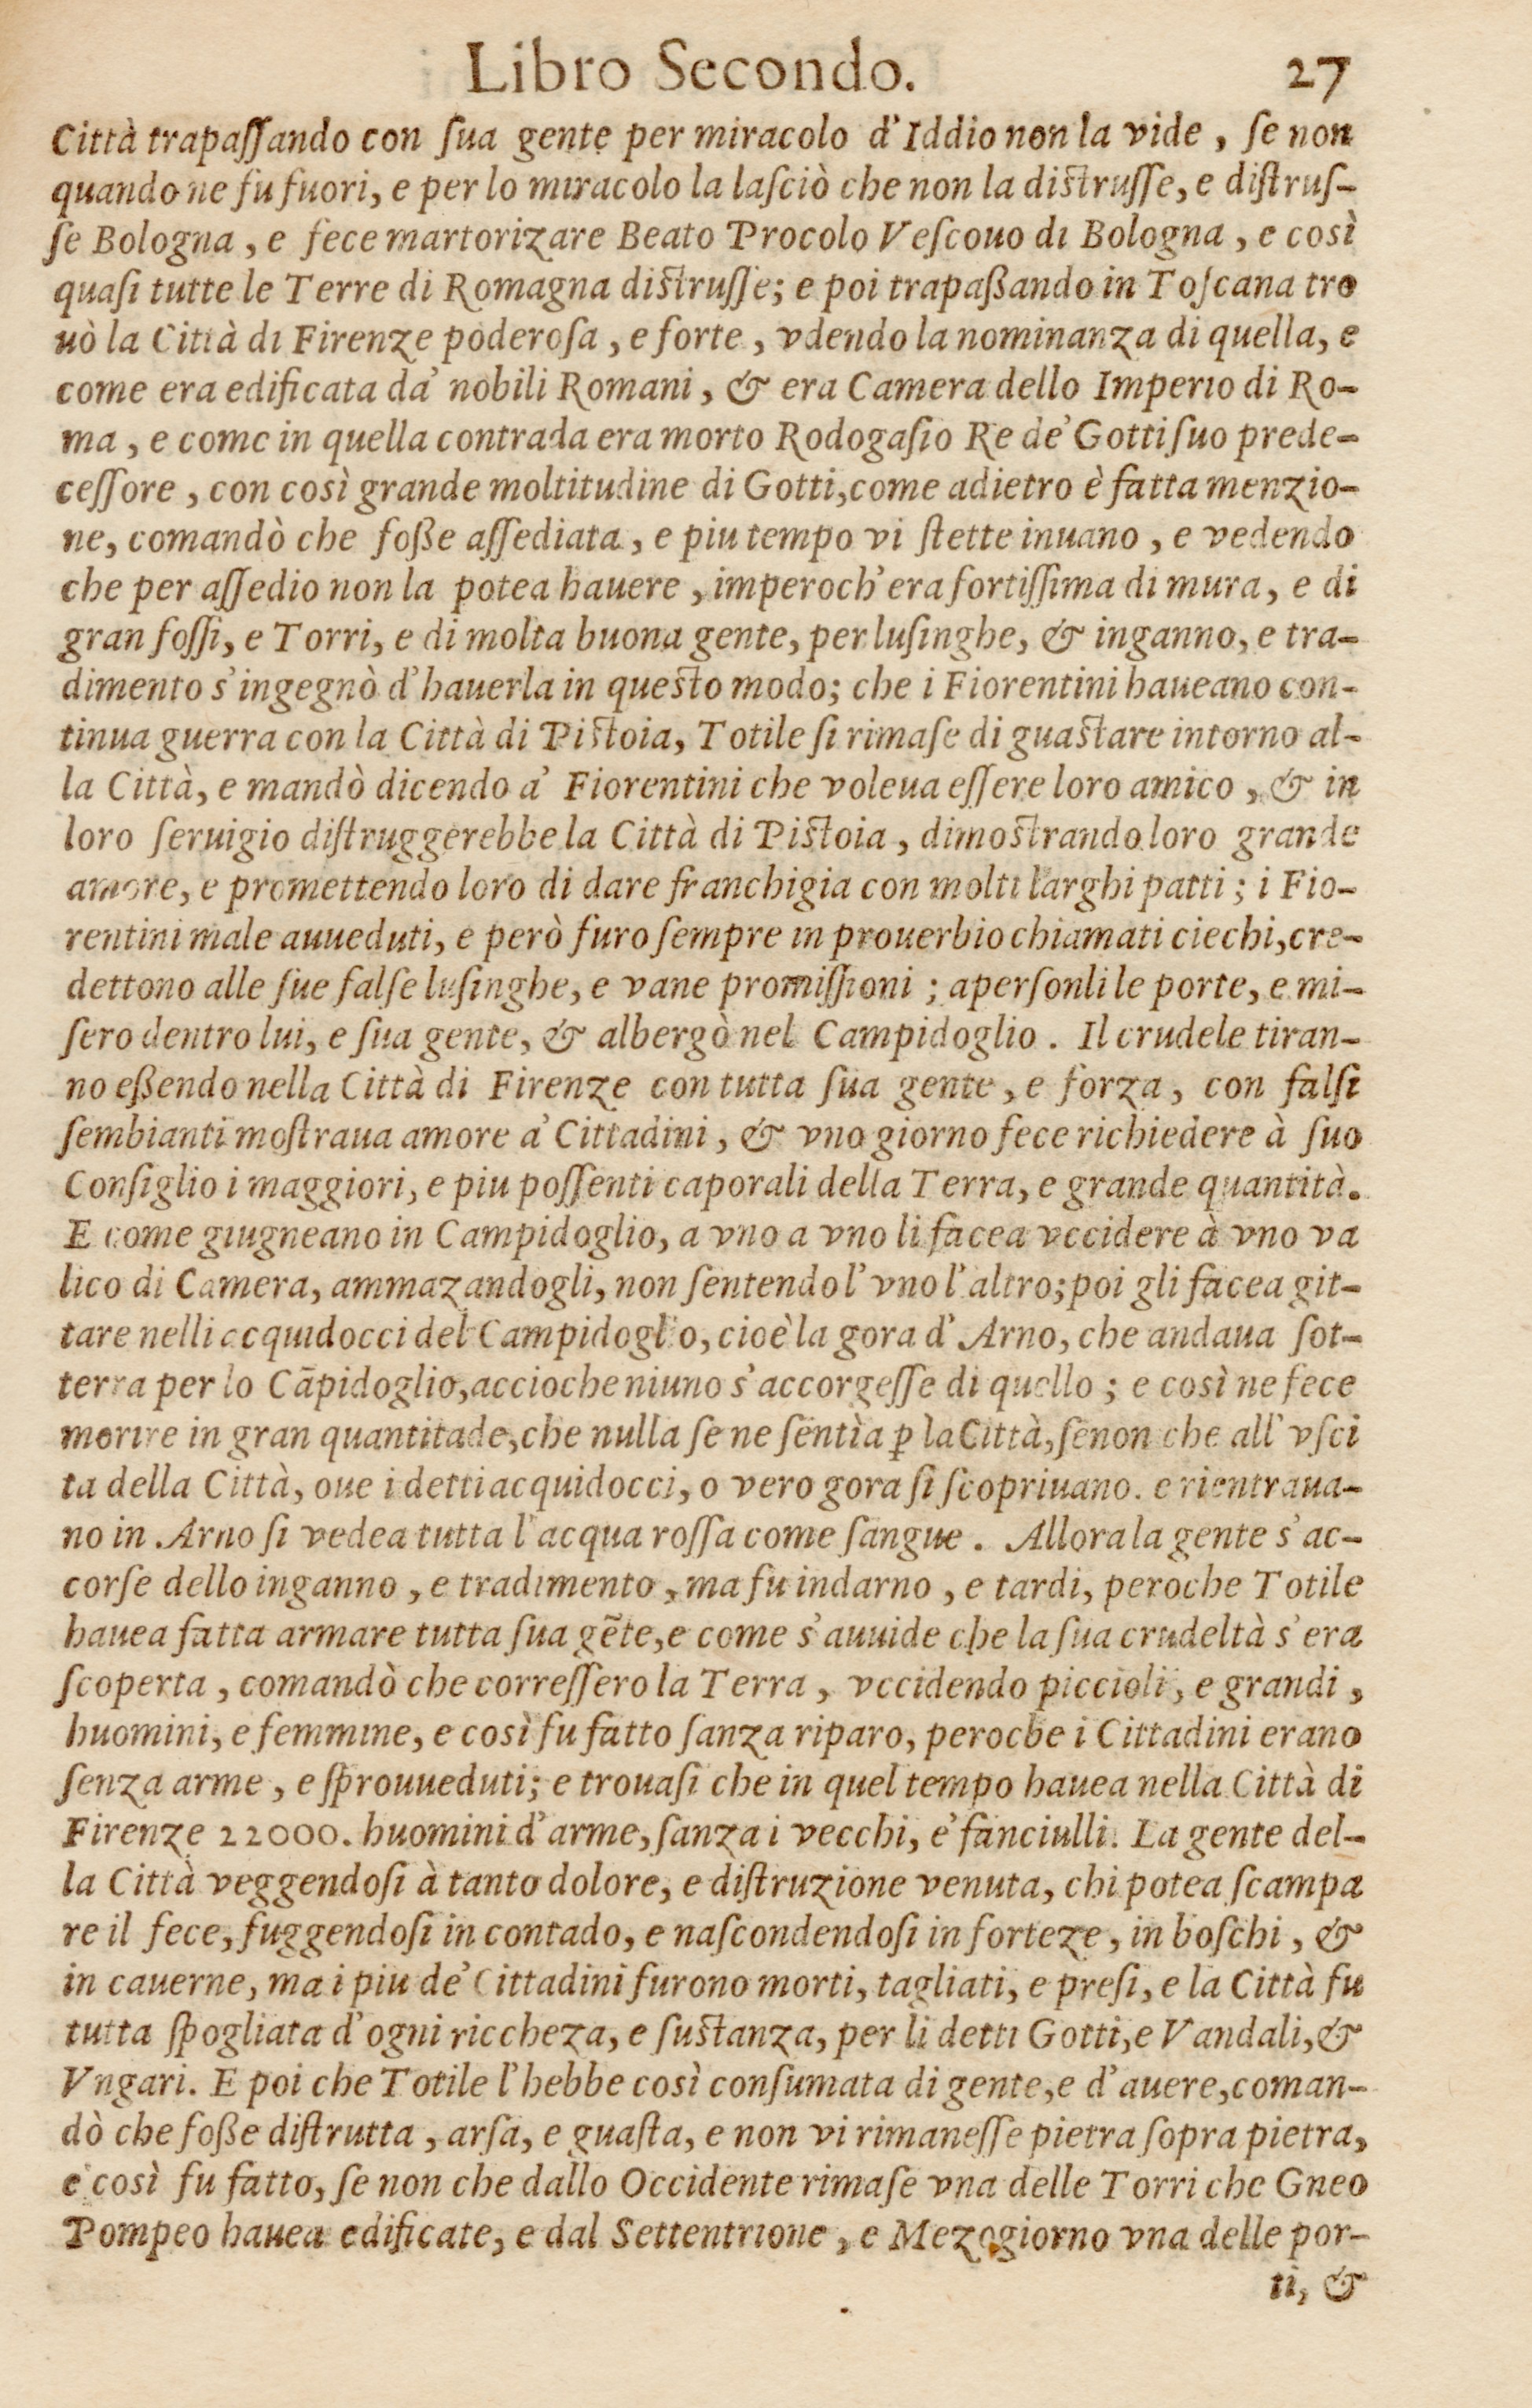 Libro Secondo. 27
Città trapaſſando con ſua gente per miracolo d'Iddio non la vide, ſe non
quando ne fu fuori, e per lo miracolo la laſciò che non la diſtruſſe, e diſtruſ-
ſe Bologna, e fece martorizare Beato Procolo Veſcouo di Bologna, e così
quaſi tutte le Terre di Romagna diſtruſſe; e poi trapaßando in Toſcana tro
uò la Città di Firenze poderoſa, e forte, vdendo la nominanza di quella, e
come era edificata da' nobili Romani, & era Camera dello Imperio di Ro-
ma, e come in quella contrada era morto Rodogaſio Re de' Gotti ſuo prede-
ceſſore, con così grande moltitudine di Gotti, come adietro è fatta menzio-
ne, comandò che foße aſſediata, e piu tempo vi ſtette inuano, e vedendo
che per aſſedio non la potea hauere, imperoch'era fortiſſima di mura, e di
gran foſſi, e Torri, e di molta buona gente, per luſinghe, & inganno, e tra-
dimento s'ingegnò d'hauerla in queſto modo; che i Fiorentini haueano con-
tinua guerra con la Città di Piſtoia, Totile ſi rimaſe di guaſtare intorno al-
la Città, e mandò dicendo a' Fiorentini che voleua eſſere loro amico, & in
loro ſeruigio diſtruggerebbe la Città di Piſtoia, dimoſtrando loro grande
amore, e promettendo loro di dare franchigia con molti larghi patti; i Fio-
rentini male auueduti, e però furo ſempre in prouerbio chiamati ciechi, cre-
dettono alle ſue falſe luſinghe, e vane promiſſioni; aperſonli le porte, e mi-
ſero dentro lui, e ſua gente, & albergò nel Campidoglio. Il crudele tiran-
no eßendo nella Città di Firenze con tutta ſua gente, e forza, con falſi
ſembianti moſtraua amore a' Cittadini, & vno giorno fece richiedere à ſuo
Conſiglio i maggiori, e piu poſſenti caporali della Terra, e grande quantità.
E come giugneano in Campidoglio, a vno a vno li facea vccidere à vno va
lico di Camera, ammazandogli, non ſentendo l'vno l'altro; poi gli facea git-
tare nelli acquidocci del Campidoglio, cioè la gora d'Arno, che andaua ſot-
terra per lo Cãpidoglio, accioche niuno s'accorgeſſe di quello; e così ne fece
morire in gran quantitade, che nulla ſe ne ſentìa ꝑ la Città, ſenon che all'vſci
ta della Città, oue i detti acquidocci, o vero gora ſi ſcopriuano. e rientraua-
no in Arno ſi vedea tutta l'acqua roſſa come ſangue. Allora la gente s'ac-
corſe dello inganno, e tradimento, ma fu indarno, e tardi, peroche Totile
hauea fatta armare tutta ſua gẽte, e come s'auuide che la ſua crudeltà s'era
ſcoperta, comandò che correſſero la Terra, vccidendo piccioli, e grandi,
huomini, e femmine, e così fu fatto ſanza riparo, peroche i Cittadini erano
ſenza arme, e ſprouueduti; e trouaſi che in quel tempo hauea nella Città di
Firenze 22000. huomini d'arme, ſanza i vecchi, e' fanciulli. La gente del-
la Città veggendoſi à tanto dolore, e diſtruzione venuta, chi potea ſcampa
re il fece, fuggendoſi in contado, e naſcondendoſi in forteze, in boſchi, &
in cauerne, ma i piu de' Cittadini furono morti, tagliati, e preſi, e la Città fu
tutta ſpogliata d'ogni riccheza, e ſuſtanza, per li detti Gotti, e Vandali, &
Vngari. E poi che Totile l'hebbe così conſumata di gente, e d'auere, coman-
dò che foße diſtrutta, arſa, e guaſta, e non vi rimaneſſe pietra ſopra pietra,
e così fu fatto, ſe non che dallo Occidente rimaſe vna delle Torri che Gneo
Pompeo hauea edificate, e dal Settentrione, e Mezogiorno vna delle por-
ti, &